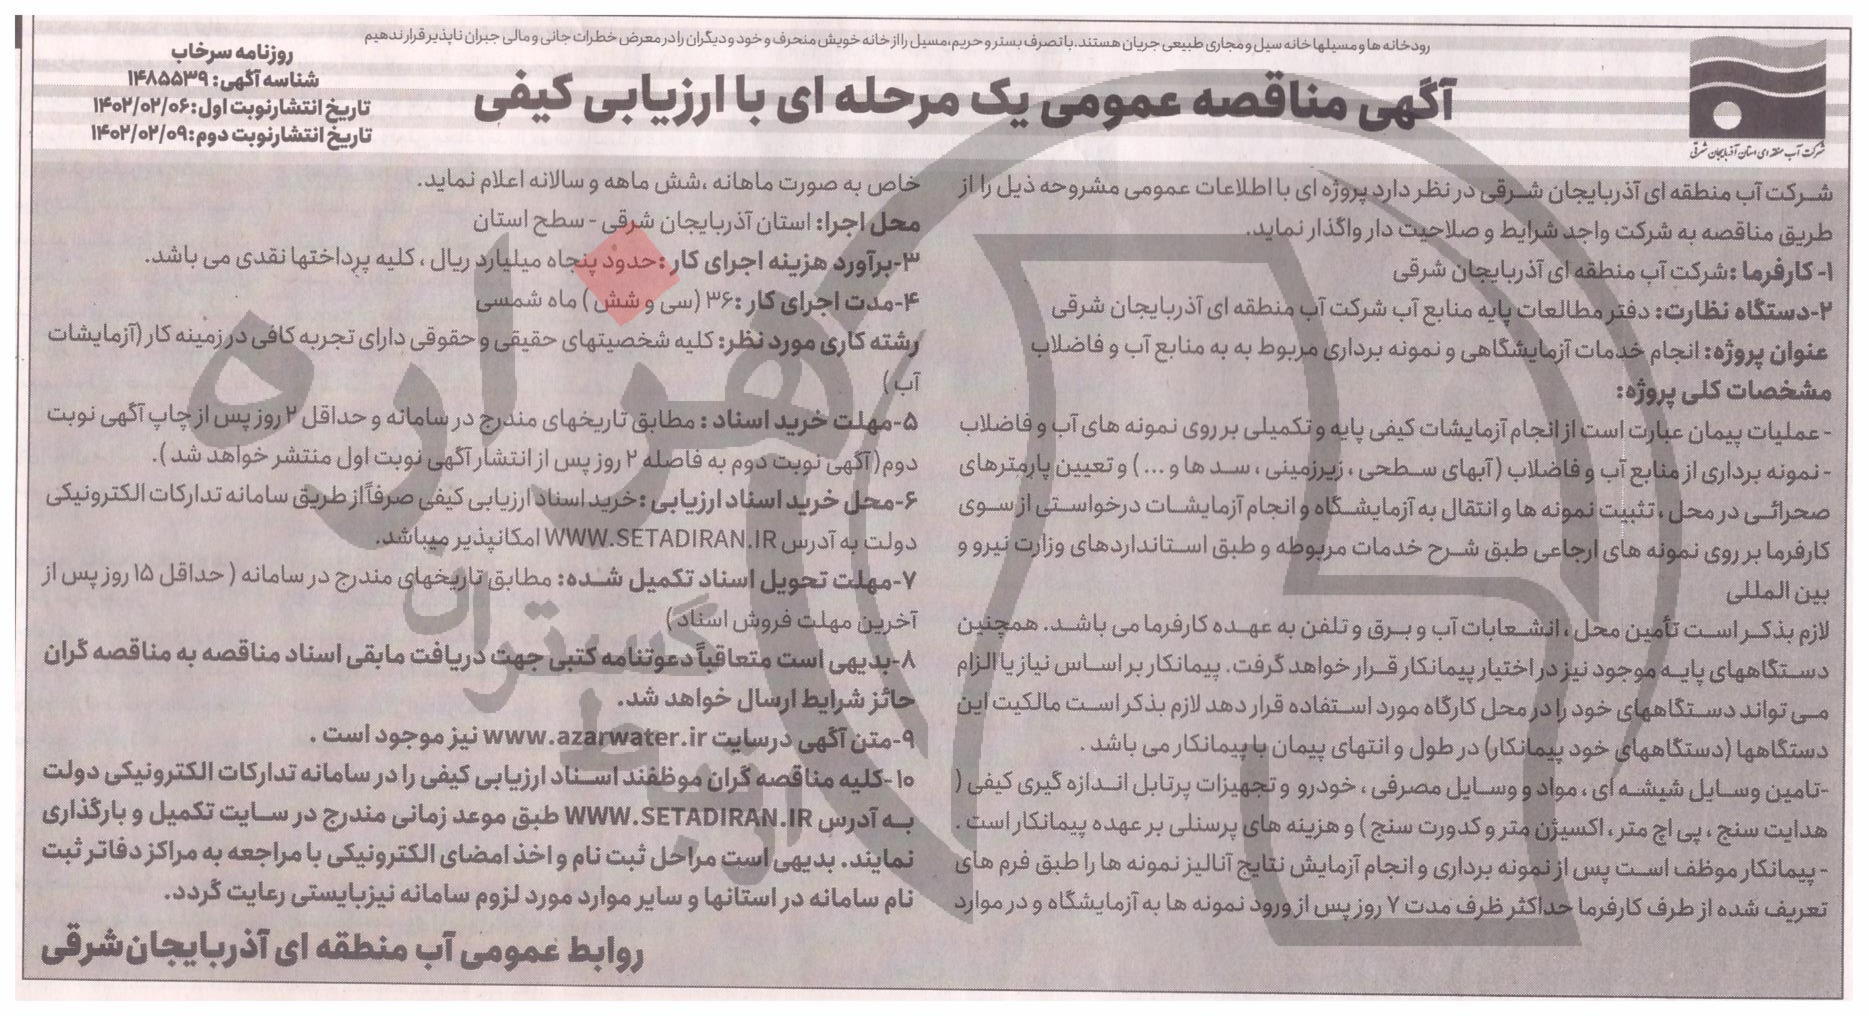 رودخانه ها و مسیلها خانه سیل و مجاری طبیعی جریان هستند. با تصرف بستر و حریم، مسیل را از خانه خویش منحرف و خود و دیگران را در معرض خطرات جانی و مالی جبران ناپذیر قرار ندهیم
شرکت آب منطقه ای استان آذربایجان شرقی
آگهی مناقصه عمومی یک مرحله ای با ارزیابی کیفی
روزنامه سرخاب
شناسه آگهی: ۱۴۸۵۵۳۹
تاریخ انتشار نوبت اول: ۱۴۰۲/۰۲/۰۶
تاریخ انتشار نوبت دوم: ۱۴۰۲/۰۲/۰۹
شرکت آب منطقه ای آذربایجان شرقی در نظر دارد پروژه ای با اطلاعات عمومی مشروحه ذیل را از
طریق مناقصه به شرکت واجد شرایط و صلاحیت دار واگذار نماید.
۱- کارفرما : شرکت آب منطقه ای آذربایجان شرقی
۲-دستگاه نظارت: دفتر مطالعات پایه منابع آب شرکت آب منطقه ای آذربایجان شرقی
عنوان پروژه: انجام خدمات آزمایشگاهی و نمونه برداری مربوط به به منابع آب و فاضلاب
مشخصات کلی پروژه:
- عملیات پیمان عبارت است از انجام آزمایشات کیفی پایه و تکمیلی بر روی نمونه های آب و فاضلاب
- نمونه برداری از منابع آب و فاضلاب ( آبهای سطحی ، زیرزمینی ، سد ها و ... ) و تعیین پارمترهای
صحرائی در محل ، تثبیت نمونه ها و انتقال به آزمایشگاه و انجام آزمایشات درخواستی از سوی
کارفرما بر روی نمونه های ارجاعی طبق شرح خدمات مربوطه و طبق استانداردهای وزارت نیرو و
بین المللی
لازم بذکر است تأمین محل ، انشعابات آب و برق و تلفن به عهده کارفرما می باشد. همچنین
دستگاههای پایه موجود نیز در اختیار پیمانکار قرار خواهد گرفت. پیمانکار بر اساس نیاز یا الزام
می تواند دستگاههای خود را در محل کارگاه مورد استفاده قرار دهد لازم بذکر است مالکیت این
دستگاهها (دستگاههای خود پیمانکار) در طول و انتهای پیمان با پیمانکار می باشد .
-تامین وسایل شیشه ای ، مواد و وسایل مصرفی ، خودرو و تجهیزات پرتابل اندازه گیری کیفی (
هدایت سنج ، پی اچ متر ، اکسیژن متر و کدورت سنج ) و هزینه های پرسنلی بر عهده پیمانکار است .
- پیمانکار موظف است پس از نمونه برداری و انجام آزمایش نتایج آنالیز نمونه ها را طبق فرم های
تعریف شده از طرف کارفرما حداکثر ظرف مدت ۷ روز پس از ورود نمونه ها به آزمایشگاه و در موارد
خاص به صورت ماهانه ،شش ماهه و سالانه اعلام نماید.
محل اجرا: استان آذربایجان شرقی - سطح استان
۳-برآورد هزینه اجرای کار : حدود پنجاه میلیارد ریال ، کلیه پرداختها نقدی می باشد.
۴-مدت اجرای کار : ۳۶ (سی و شش ) ماه شمسی
رشته کاری مورد نظر: کلیه شخصیتهای حقیقی و حقوقی دارای تجربه کافی در زمینه کار (آزمایشات
آب )
۵-مهلت خرید اسناد : مطابق تاریخهای مندرج در سامانه و حداقل ۲ روز پس از چاپ آگهی نوبت
دوم( آگهی نوبت دوم به فاصله ۲ روز پس از انتشار آگهی نوبت اول منتشر خواهد شد ).
۶-محل خرید اسناد ارزیابی : خرید اسناد ارزیابی کیفی صرفاً از طریق سامانه تدارکات الکترونیکی
دولت به آدرس WWW.SETADIRAN.IR امکانپذیر میباشد.
۷-مهلت تحویل اسناد تکمیل شده: مطابق تاریخهای مندرج در سامانه ( حداقل ۱۵ روز پس از
آخرین مهلت فروش اسناد )
۸-بدیهی است متعاقباً دعوتنامه کتبی جهت دریافت مابقی اسناد مناقصه به مناقصه گران
حائز شرایط ارسال خواهد شد.
۹-متن آگهی درسایت www.azarwater.ir نیز موجود است .
۱۰-کلیه مناقصه گران موظفند اسناد ارزیابی کیفی را در سامانه تدارکات الکترونیکی دولت
به آدرس WWW.SETADIRAN.IR طبق موعد زمانی مندرج در سایت تکمیل و بارگذاری
نمایند. بدیهی است مراحل ثبت نام و اخذ امضای الکترونیکی با مراجعه به مراکز دفاتر ثبت
نام سامانه در استانها و سایر موارد مورد لزوم سامانه نیز بایستی رعایت گردد.
روابط عمومی آب منطقه ای آذربایجان شرقی
هزاره